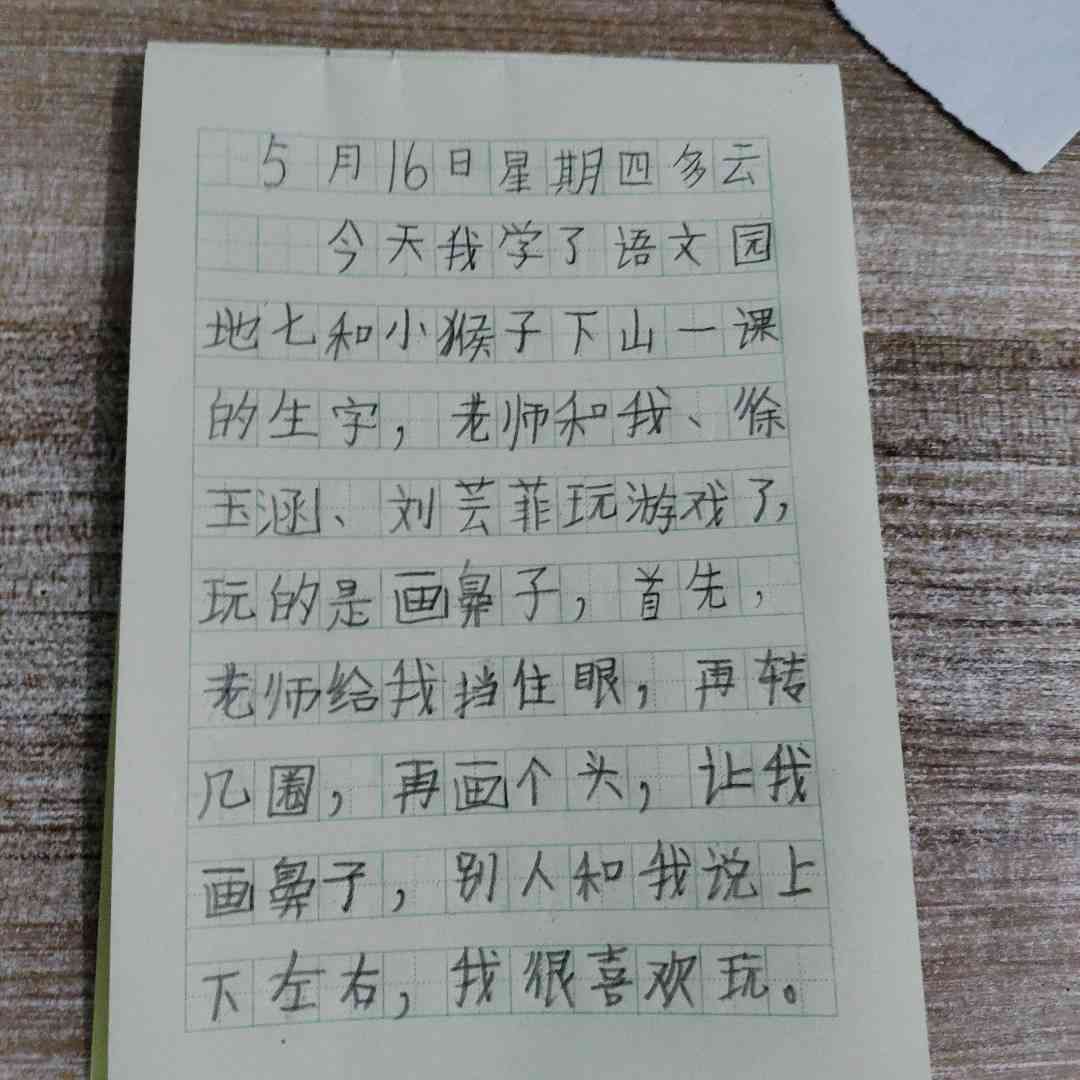 5月16日星期四多云
今天我学了语文园
地七和小猴子下山一课
的生字，老师和我、徐
玉涵、刘芸菲玩游戏了，
玩的是画鼻子，首先，
老师给我挡住眼，再转
几圈，再画个头，让我
画鼻子，别人和我说上
下左右，我很喜欢玩。